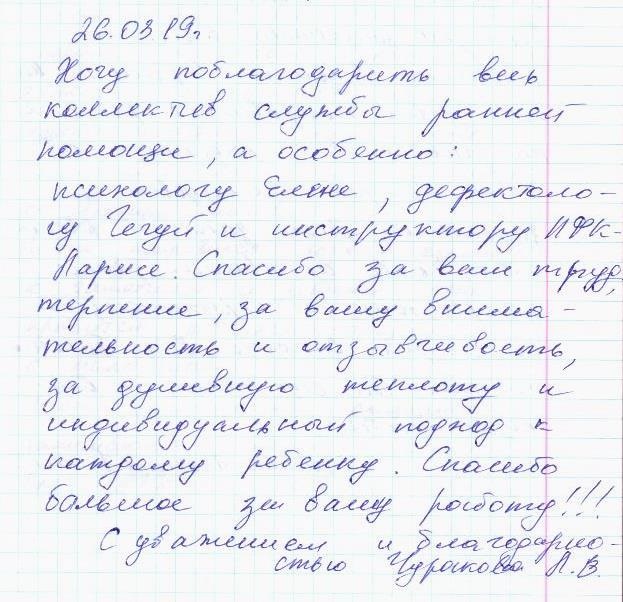 26.03 19г
Хочу поблагодарить весь
коллектив службы ранней
помощи, а особенно:
психологу Елене, дефектоло-
гу и инструктору ЛФК-
Ларисе. Спасибо за ваш труд,
терпение, за вашу внима-
тельность и отзывчивость,
за душевную теплоту и
индивидуальный подход к
каждому ребенку. Спасибо
большое за вашу работу!!!
С уважением и благодарно-
стью Чуракова Л.В.